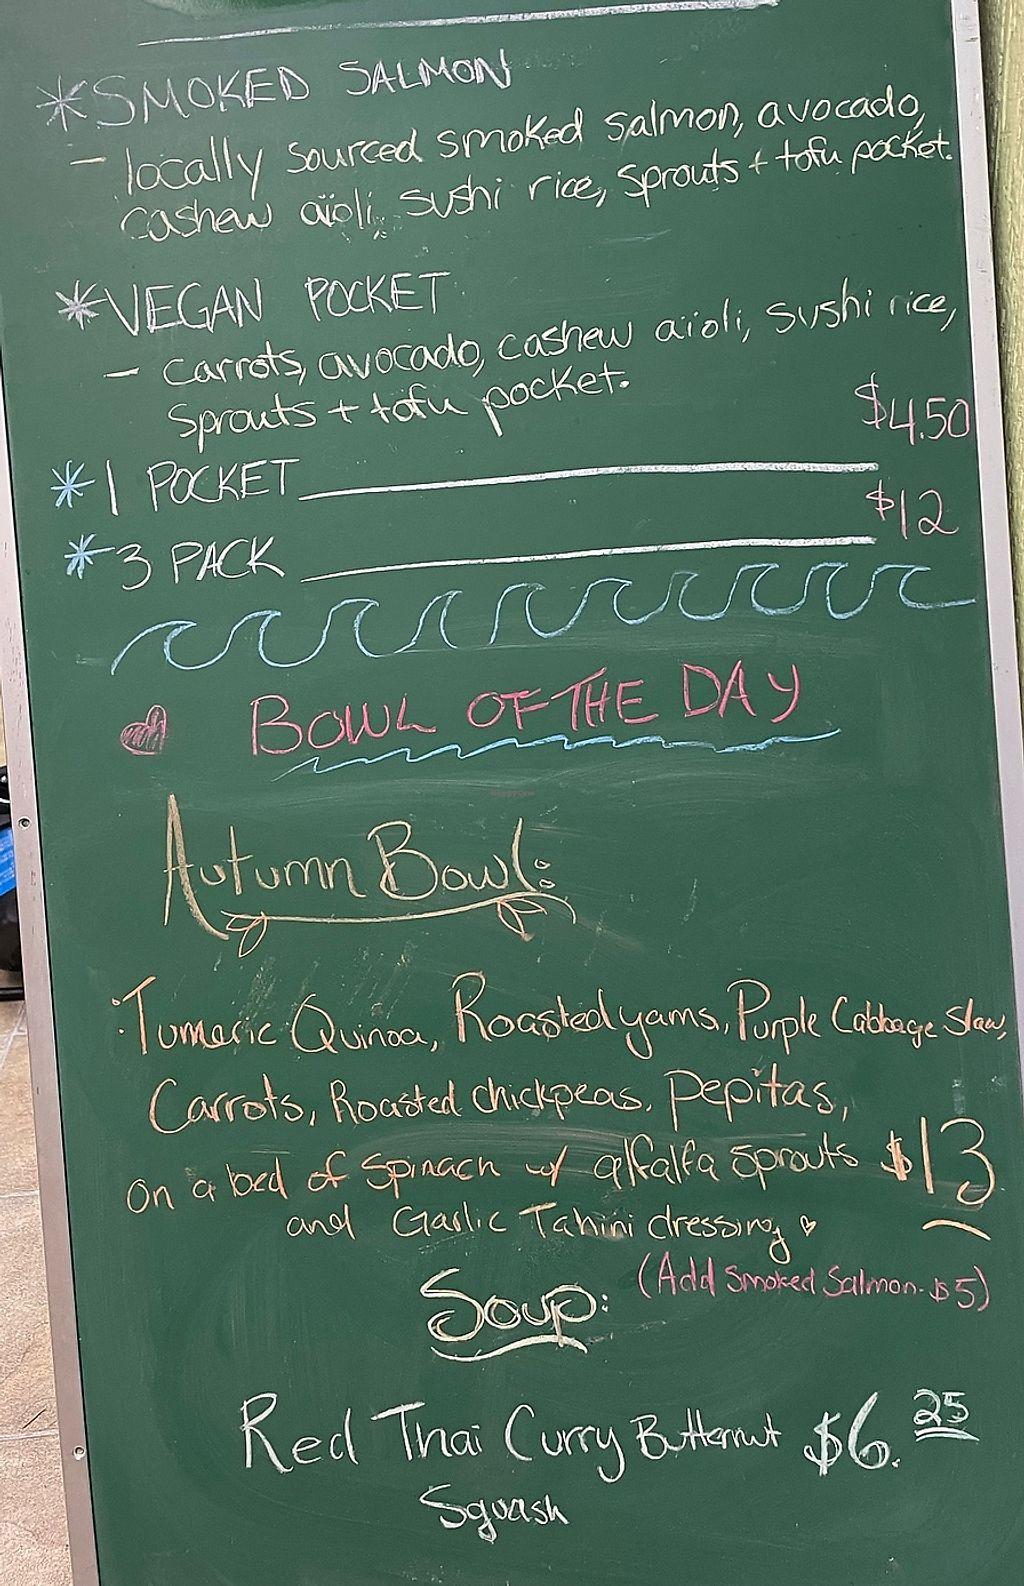 *SMOKED SALMON
- locally sourced smoked salmon, avocado,
cashew aïoli, sushi rice, sprouts + tofu pocket.
*VEGAN POCKET
- carrots, avocado, cashew aïoli, sushi rice,
sprouts + tofu pocket.
*1 POCKET $4.50
*3 PACK $12
BOWL OF THE DAY
Autumn Bowl:
Tumeric Quinoa, Roasted yams, Purple Cabbage Slaw,
Carrots, Roasted chickpeas, pepitas,
on a bed of spinach w/ alfalfa sprouts $13
and Garlic Tahini dressing
(Add Smoked Salmon - $5)
Soup:
Red Thai Curry Butternut $6.25
Squash